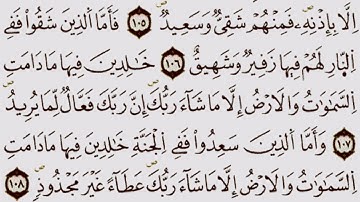 اِلَّا بِاِذْنِهٖ فَمِنْهُمْ شَقِيٌّ وَسَعِيدٌ ﴿١٠٥﴾ فَاَمَّا الَّذِينَ شَقُوا فَفِي
النَّارِ لَهُمْ فِيهَا زَفِيرٌ وَشَهِيقٌ ﴿١٠٦﴾ خَالِدِينَ فِيهَا مَا دَامَتِ
السَّمٰوَاتُ وَالْاَرْضُ اِلَّا مَا شَاءَ رَبُّكَ اِنَّ رَبَّكَ فَعَّالٌ لِمَا يُرِيدُ
﴿١٠٧﴾ وَاَمَّا الَّذِينَ سُعِدُوا فَفِي الْجَنَّةِ خَالِدِينَ فِيهَا مَا دَامَتِ
السَّمٰوَاتُ وَالْاَرْضُ اِلَّا مَا شَاءَ رَبُّكَ عَطَاءً غَيْرَ مَجْذُوذٍ ﴿١٠٨﴾